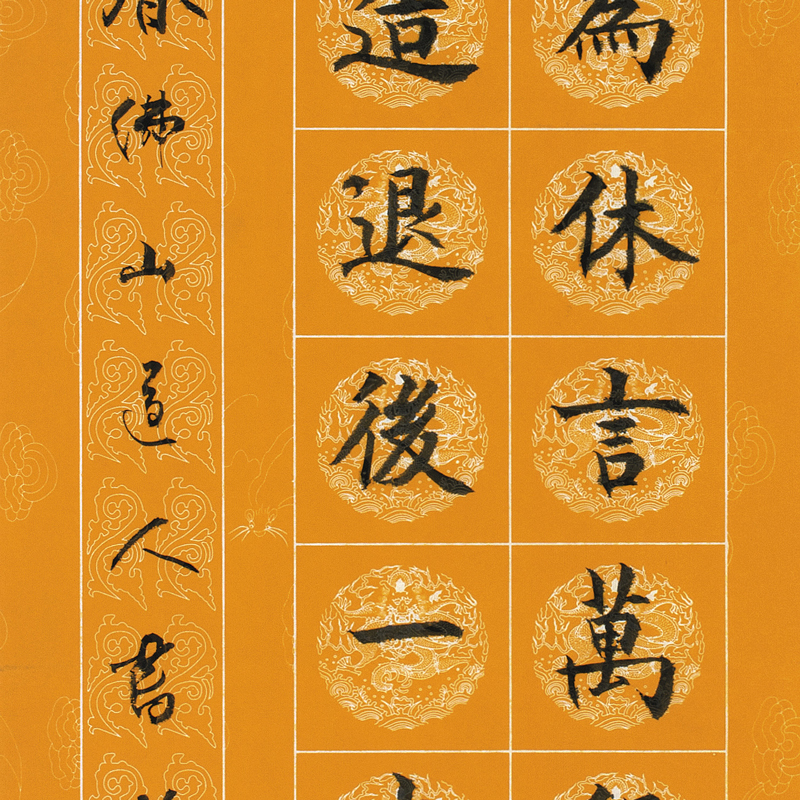 為休言萬
造退後一
春佛山道人書